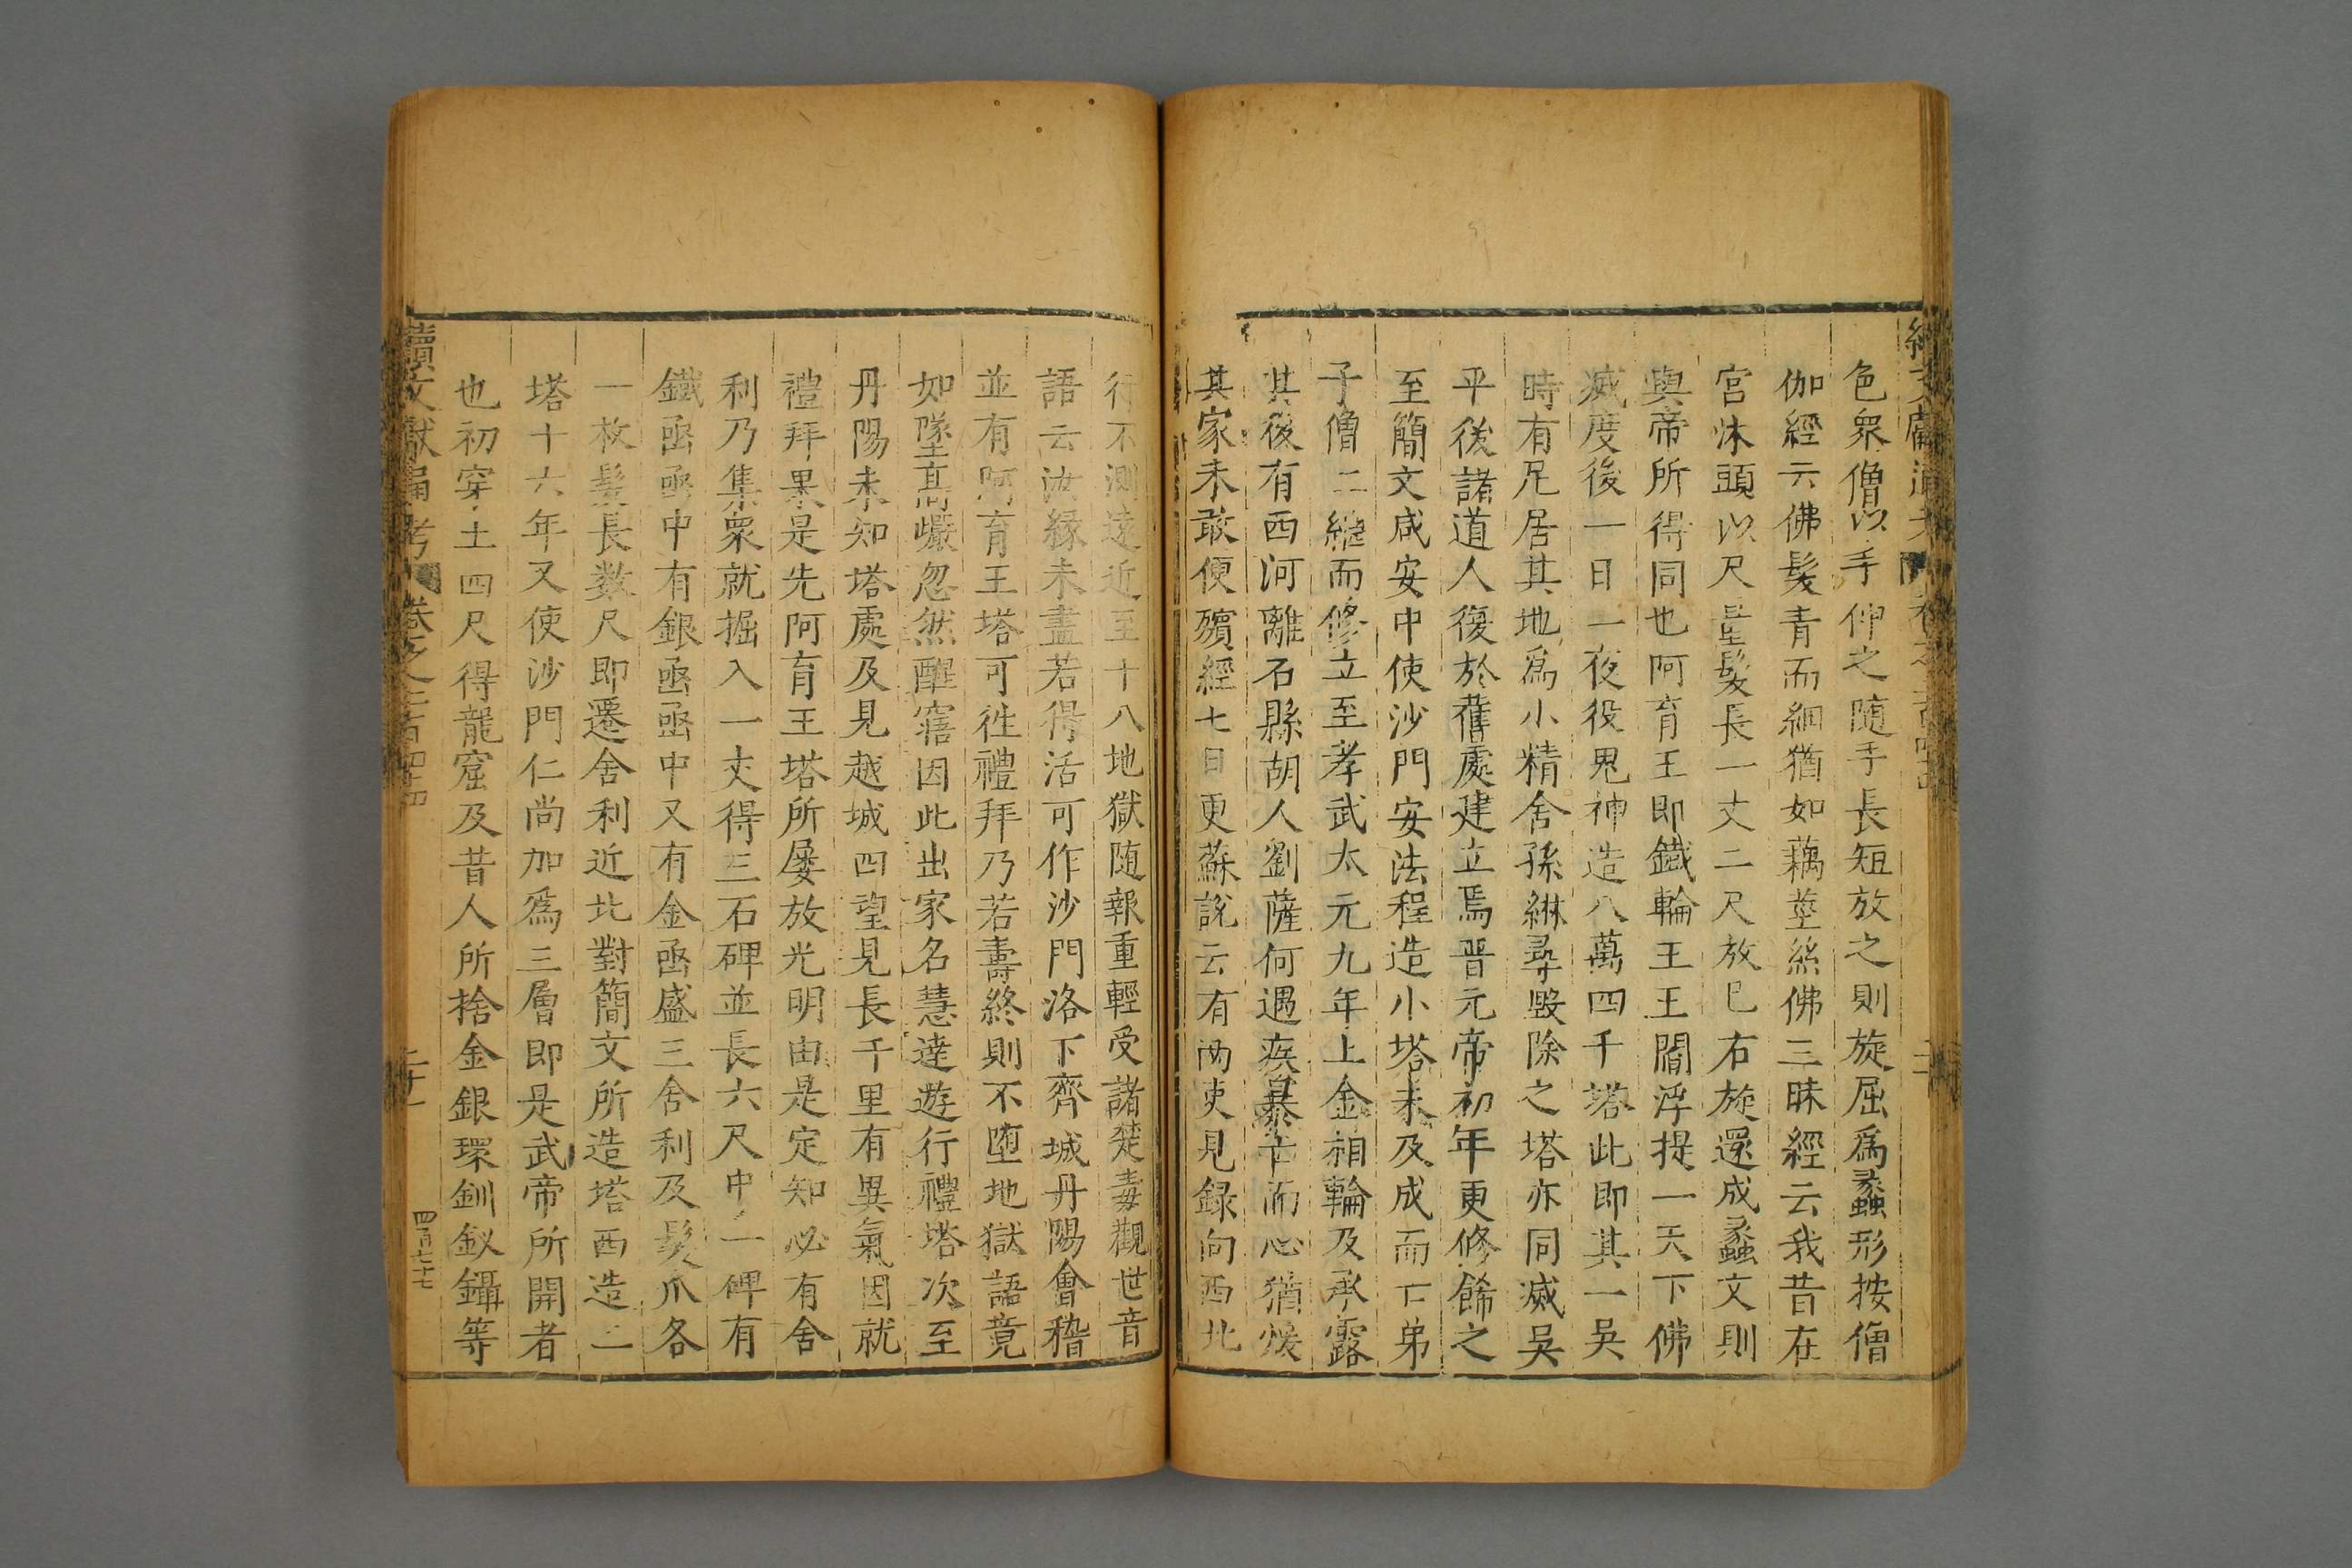 色衆僧以手伸之随手長短放之則旋屈爲蠡形按僧
伽經云佛髮青而細猶如藕莖絲佛三昧經云我昔在
宮沐頭以尺量髮長一丈二尺放巳右旋還成蠡文則
與帝所得同也阿育王即鐵輪王王閻浮提一天下佛
滅度後一日一夜役鬼神造八萬四千塔此即其一吳
時有尼居其地爲小精舍孫綝尋毀除之塔亦同滅吳
平後諸道人復於舊處建立焉晋元帝初年更修餙之
至簡文咸安中使沙門安法程造小塔未及成而亡弟
子僧二繼而修立至孝武太元九年上金相輪及承露
其後有西河離石縣胡人劉薩何遇疾暴亡而心猶煖
其家未敢便殯經七日更蘇說云有兩吏見録向西北
行不測遠近至十八地獄随報重輕受諸楚毒觀世音
語云汝縁未盡若得活可作沙門洛下齊城丹陽會稽
並有阿育王塔可徃禮拜乃若壽終則不堕地獄語竟
如墜髙巖忽然醒寤因此出家名慧達遊行禮塔次至
丹陽未知塔處及見越城四望見長千里有異氣因就
禮拜果是先阿育王塔所屡放光明由是定知必有舍
利乃集衆就掘入一丈得三石碑並長六尺中一碑有
鐵函函中有銀函函中又有金函盛三舍利及髮爪各
一枚髮長数尺即遷舍利近北對簡文所造塔西造二
塔十六年又使沙門仁尚加爲三層即是武帝所開者
也初穿土四尺得龍窟及昔人所捨金銀環釧釵鑷等
續文獻通考 卷之二百四十四 二十一 四百七十七